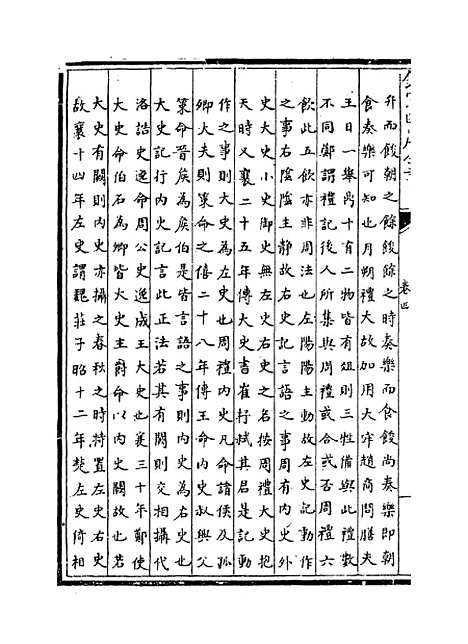 卷四
升而餕朝之餘餕餘之時奏樂而食餕尚奏樂即朝
食奏樂可知也月朔禮大故加用大牢趙商問膳夫
王日一舉鼎十有二物皆有俎則三牲備與此禮數
不同鄭謂禮記後人所集與周禮或合或否周禮六
飲此五飲亦非周法也左陽陽主動故左史記動作
之事右陰陰主靜故右史記言語之事周有内史外
史大史小史御史無左史右史之名按周禮大史抱
天時又襄二十五年傳大史書崔杼弑其君是記動
作之事則大史為左史也周禮内史凡命諸侯及孤
卿大夫則策命之僖二十八年傳王命内史叔興父
策命晉侯為侯伯是皆言語之事則内史為右史也
大史記行内史記言此正法若其有闕則交相攝代
洛誥史逸命周公史逸成王大史也襄三十年鄭使
大史命伯石為卿皆大史主爵命以内史闕故也若
大史有闕則内史亦攝之春秋之時特置左史右史
故襄十四年左史謂魏莊子昭十二年楚左史倚相